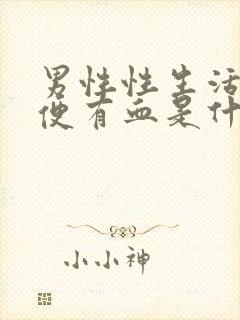 男性性生活
便有血是什
小小神